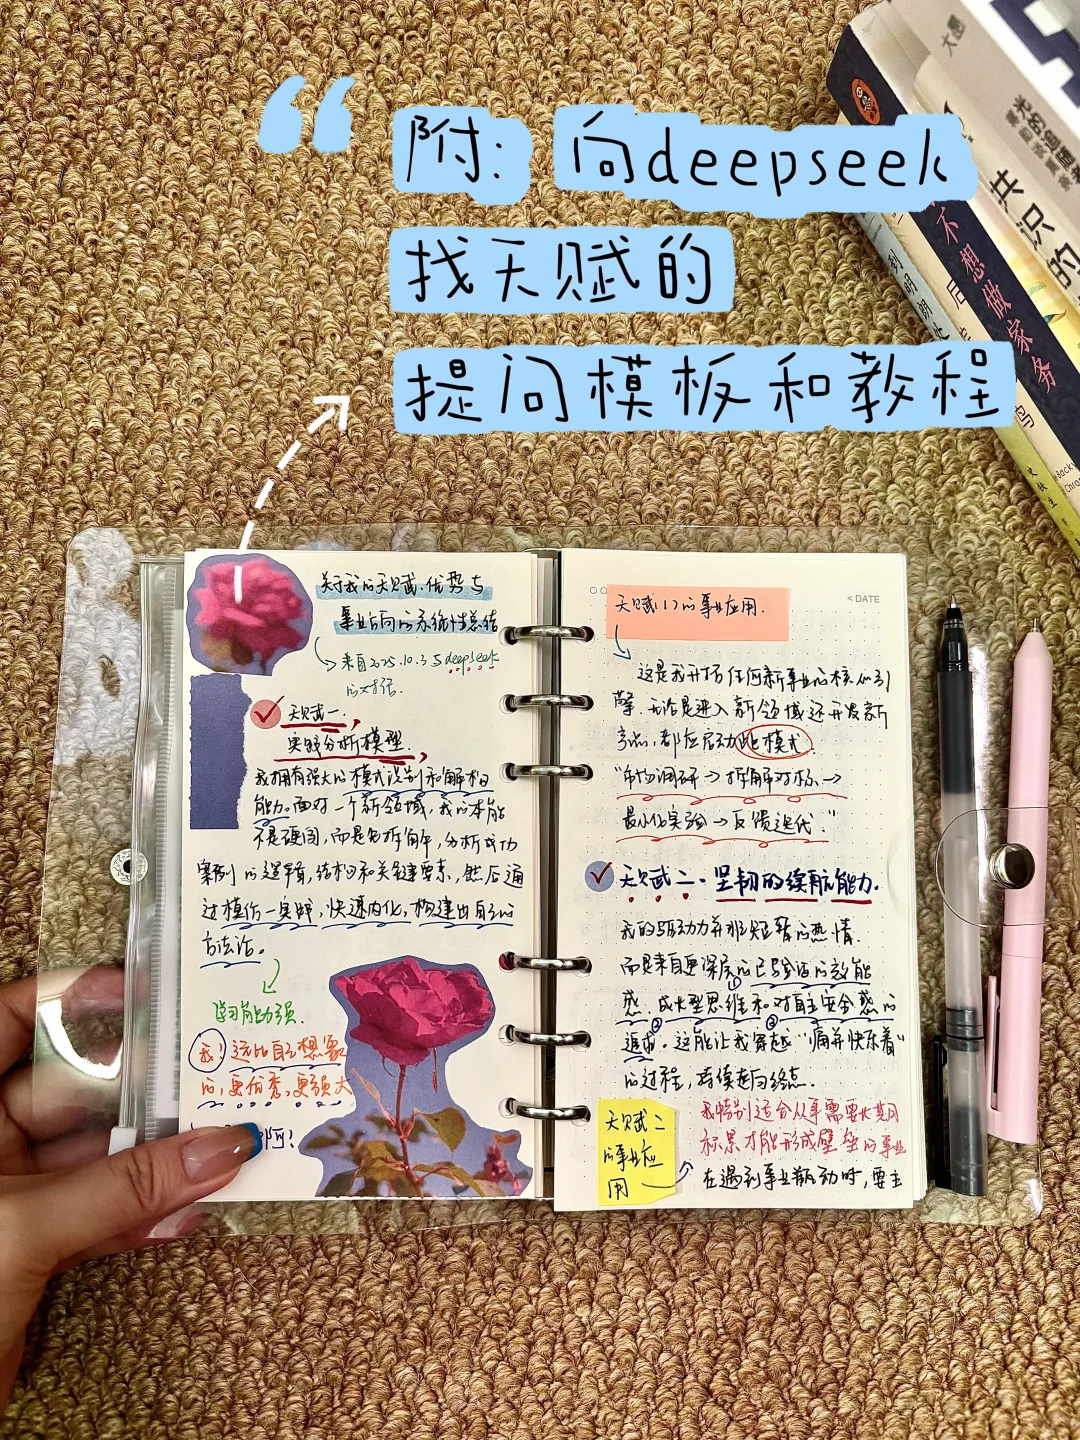 附：向deepseek
找天赋的
提问模板和教程
大愚
共识的
不想做家务
到明朗处
关于我的天赋、优势与
事业方向的系统性总结
来自2025.10.3与deepseek
的对话.
天赋一、
实践分析模型.
我拥有强大的模式识别和解构
能力。面对一个新领域,我的本能
不是硬闯,而是先拆解,分析成功
案例的逻辑,结构和关键要素,然后通
过模仿—实践,快速内化,构建出自己的
方法论。
学习能力强.
我!远比自己想象
的,更优秀,更强大
啊!
< DATE
天赋(1)的事业应用.
这是我开拓任何新事业的核心引
擎.无论是进入新领域还开发新
产品,都应启动此模式.
“市场调研→拆解对标→
最小化实验→反馈迭代.”
天赋二、坚韧的续航能力.
我的驱动力并非短暂的热情.
而是来自更深层的已验证的效能
感.成长型思维和对自主安全感的
追求.这能让我穿越“痛并快乐着”
的过程,持续走向终点.
天赋二
的事业应
用
我特别适合从事需要长期
积累才能形成壁垒的事业
在遇到事业瓶颈时,要主